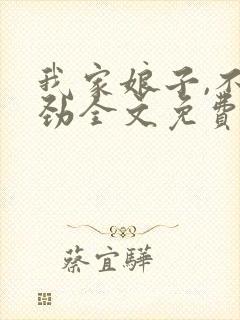 我家娘子,不
劲全文免费
蔡宜驊